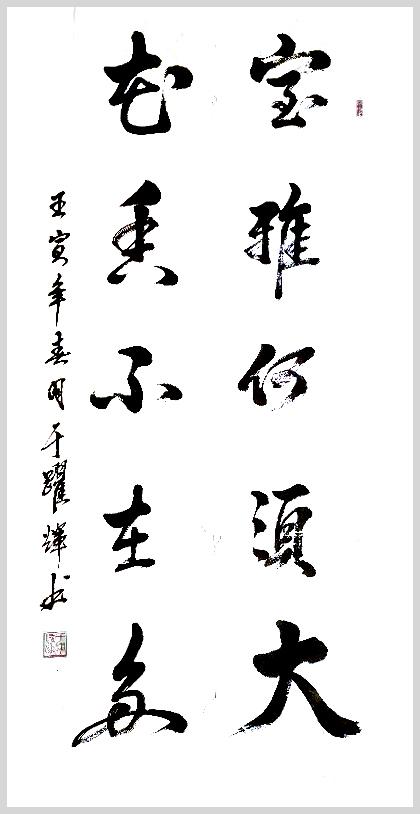 室雅何須大
花香不在多
壬寅年春月于躍輝书